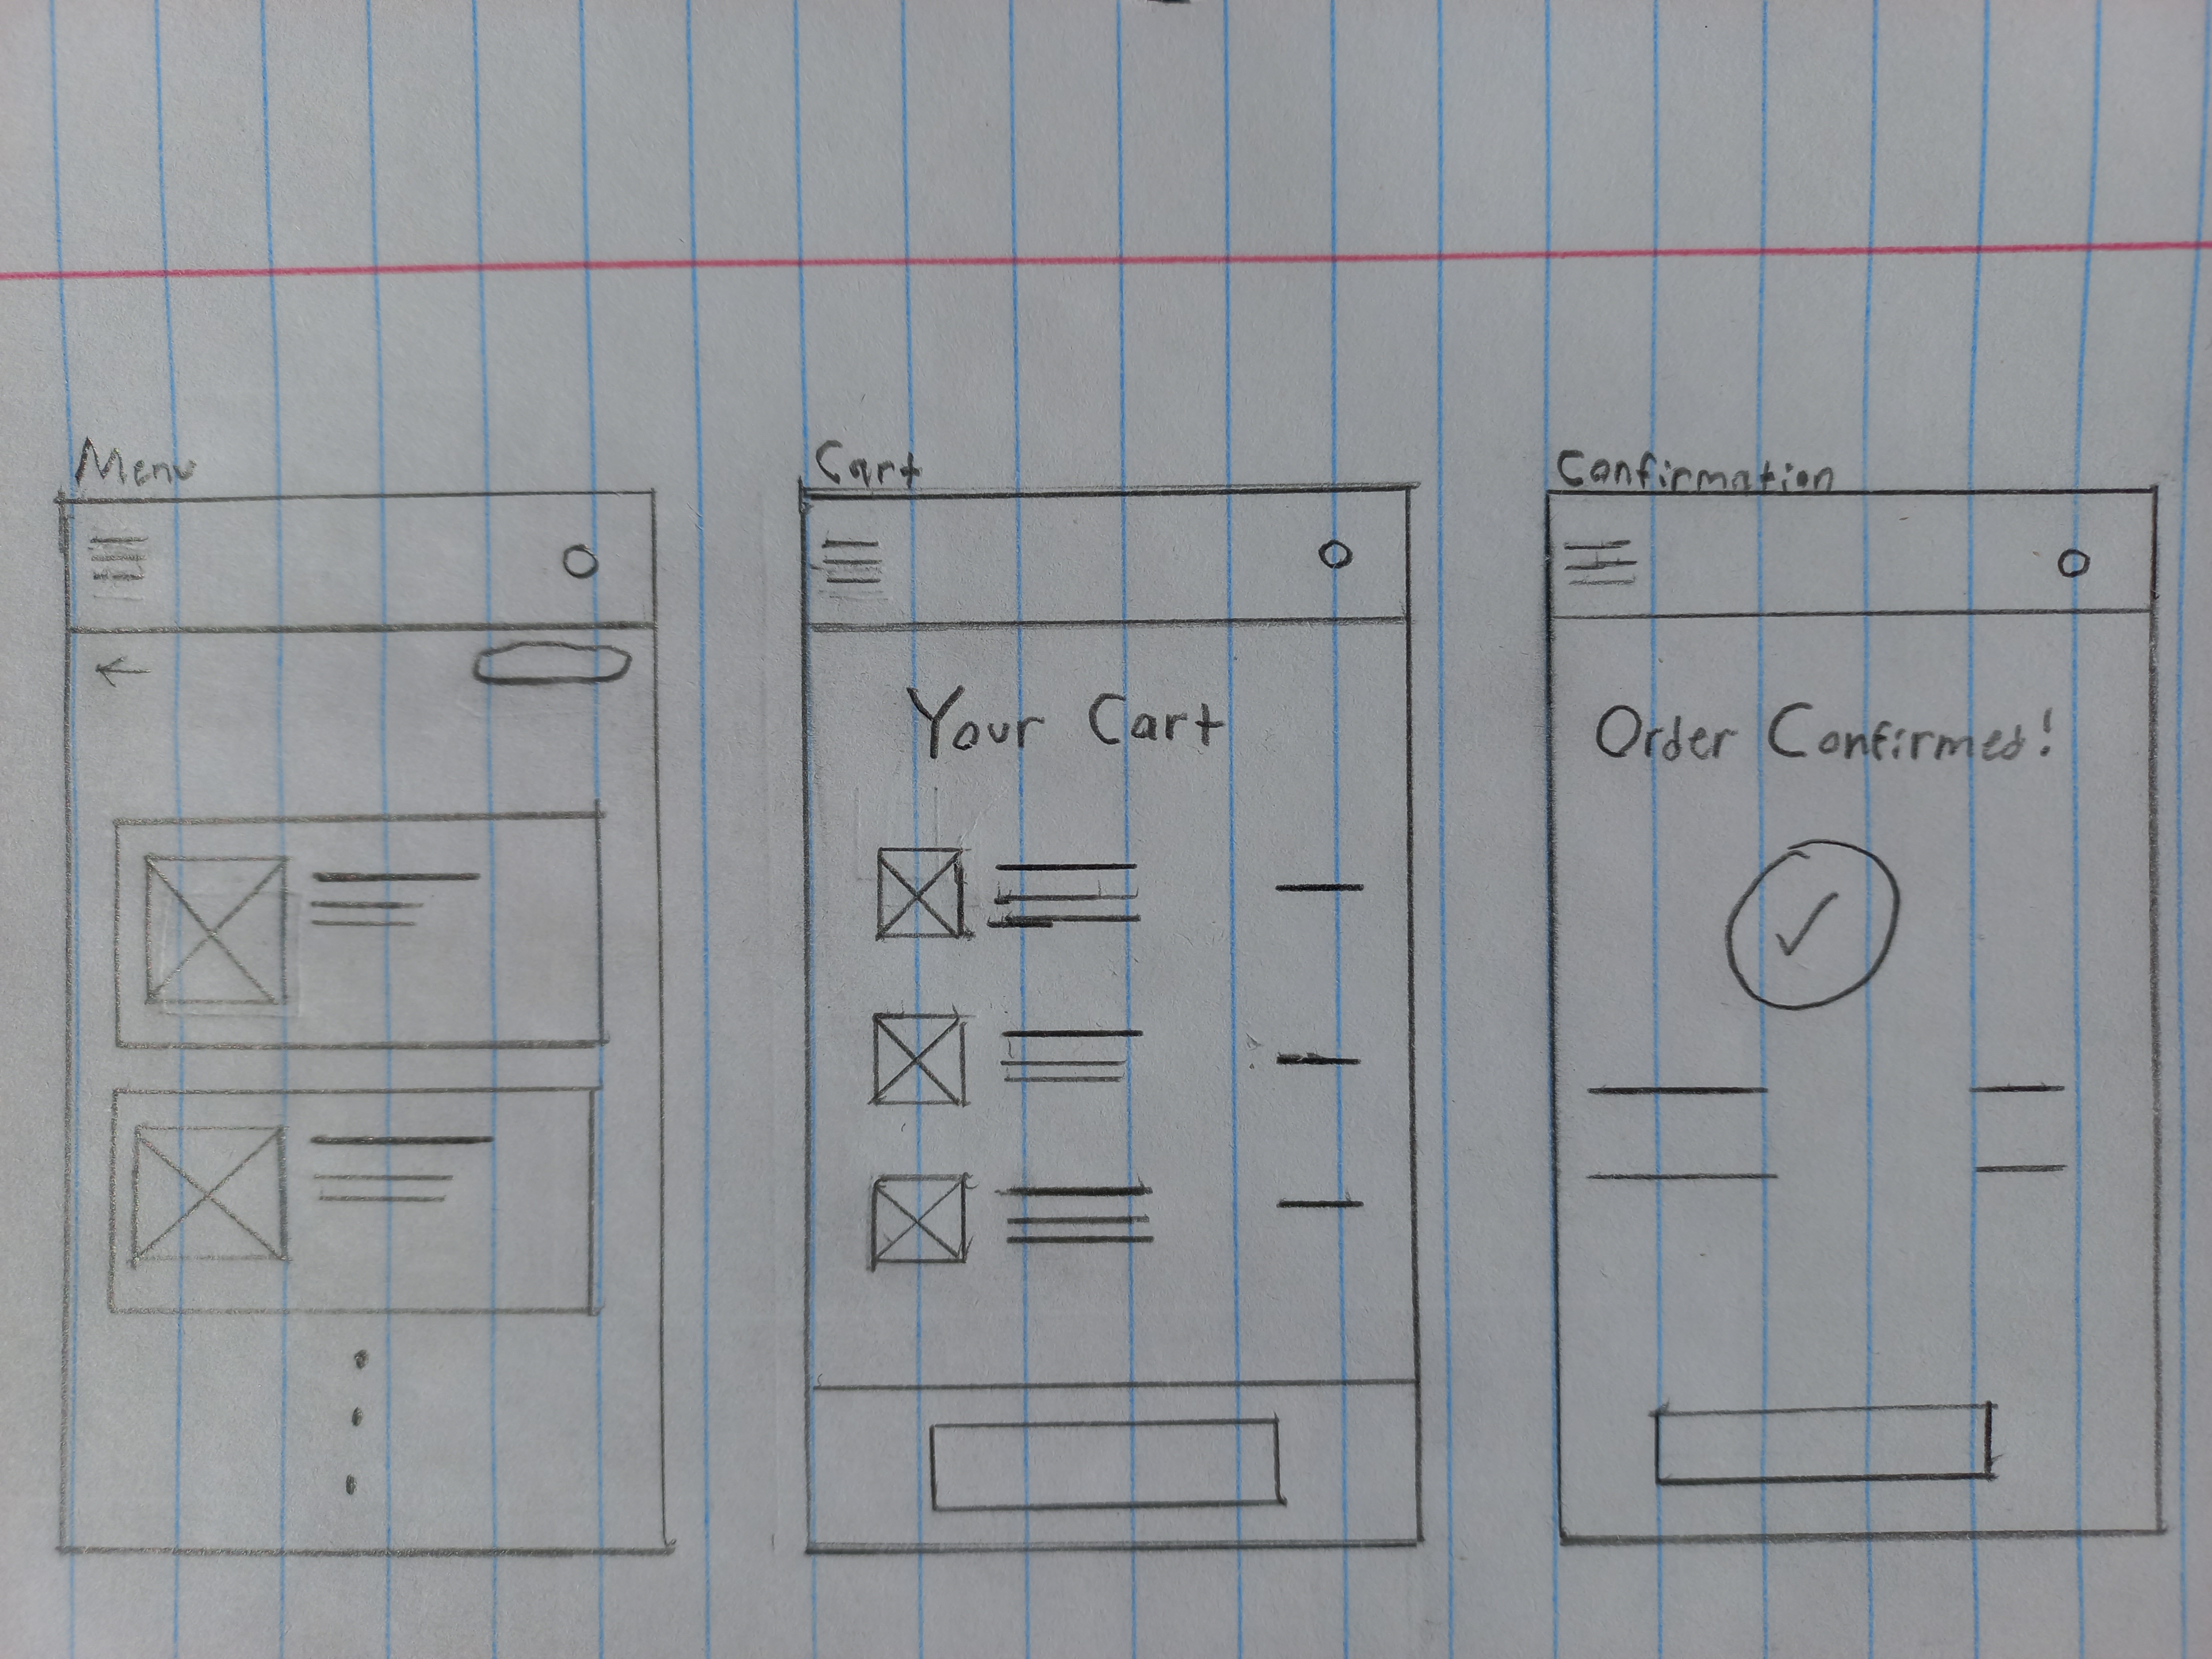 Menu
Cart
Your Cart
Confirmation
Order Confirmed!